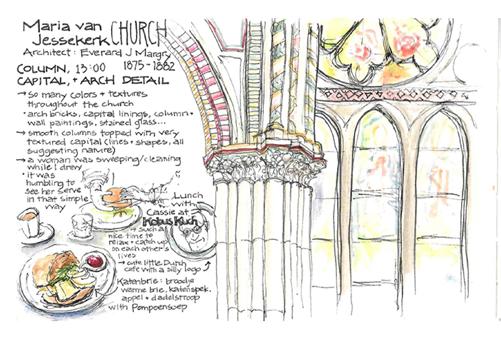 Maria van
Jessekerk CHURCH
Architect: Everard J Margry
1875-1882
COLUMN, 13:00
CAPITAL, + ARCH DETAIL
→ so many colors + textures
throughout the church
• arch bricks, capital linings, column +
wall paintings, stained glass...
→ smooth columns topped with very
textured capital (lines + shapes, all
suggesting nature)
→ a woman was sweeping/cleaning
while I drew
• it was
humbling to
see her serve
in that simple
way
Lunch
with
Cassie at
Kobus Kuch
→ such a
nice time to
relax + catch up
on each other's
lives
→ cute little Dutch
cafe with a silly logo
Katenbrie: broodje
warme brie, katenspek,
appel + dadelstroop
with Pompoensoep